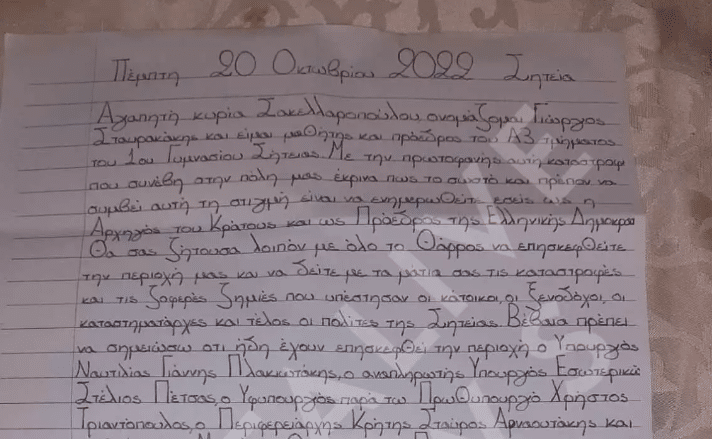 Πέμπτη 20 Οκτωβρίου 2022 Σητεία
Αγαπητή κυρία Σακελλαροπούλου ονομάζομαι Γιώργος
Σταυρακάκης και είμαι μαθητής και πρόεδρος του Α3 τμήματος
του 1ου Γυμνασίου Σητείας. Με την πρωτοφανής αυτή καταστροφή
που συνέβη στην πόλη μας έκρινα πως το σωστό και πρέπον να
συμβεί αυτή τη στιγμή είναι να ενημερωθείτε εσείς ως η
Αρχηγός του Κράτους και ως Πρόεδρος της Ελληνικής
Θα σας ζητούσα λοιπόν με όλο το Θάρρος να επησκεφθείτε
την περιοχή μας και να δείτε με τα ματια σας τις καταστροφές
και τις ζοφερές ζημιές που υπέστησαν οι κάτοικοι, οι ξενοδόχοι, οι
καταστηματάρχες και τέλος οι πολίτες της Σητείας. Βέβαια πρέπει
να σημειώσω οτι ήδη έχουν επησκεφθεί την περιοχή ο Υπουργός
Ναυτιλίας Γιάννης Πλακιωτάκης, ο αναπληρωτής Υπουργός Εσωτερικών
Στέλιος Πέτσας, ο Υφυπουργός παρά τω Πρωθυπουργό Χρήστος
Τριαντόπουλος, ο Περιφερειάρχης Κρήτης Σταύρος Αρναουτάκης και